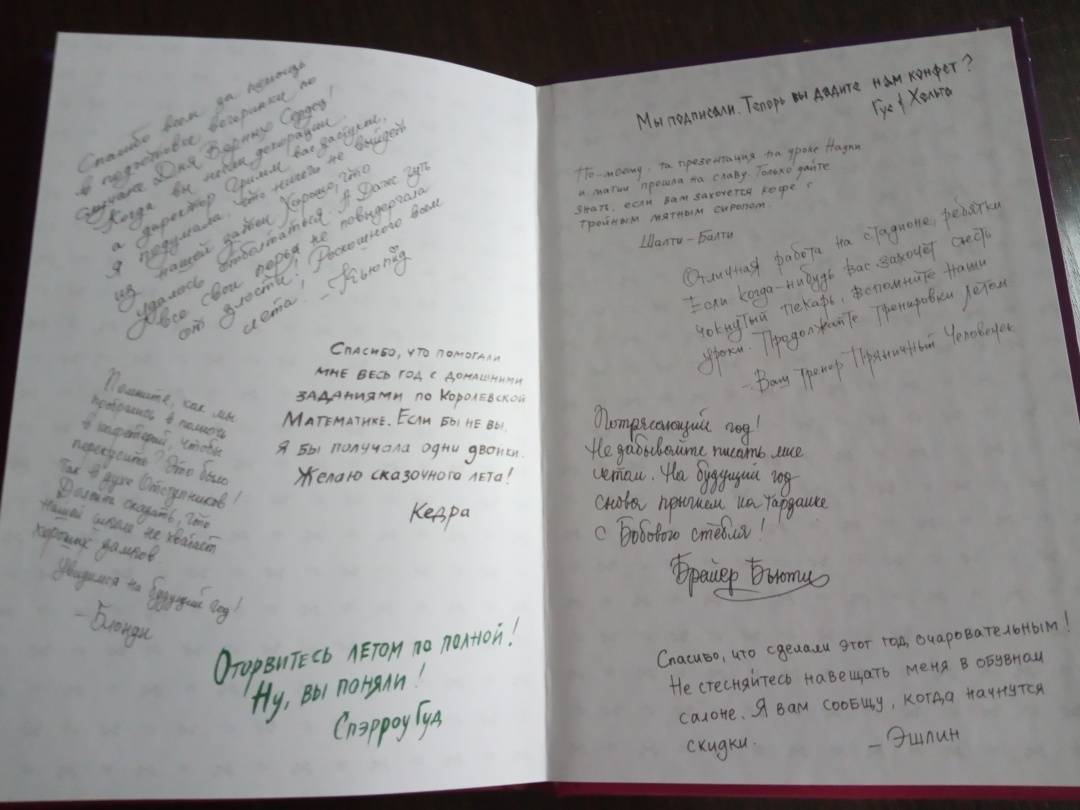 Спасибо всем за помощь
в подготовке вечеринки по
случаю Дня Верных Сердец!
Когда вы несли декорации,
а директор Гримм вас застукал,
я подумала, что ничего не выйдет
из нашей затеи. Хорошо, что
удалось отболтаться. А Дачес чуть
все свои перья не повыдергала
от злости! Роскошного всем
лета!
- Кьюпид
Спасибо, что помогали
мне весь год с домашними
заданиями по Королевской
Математике. Если бы не вы,
я бы получала одни двойки.
Желаю сказочного лета!
Кедра
Помните, как мы
пробрались в полночь
в кафетерий, чтобы
перекусить? Это было
так в духе Отступников!
Должна сказать, что
нашей школе не хватает
хороших замков.
Увидимся на будущий год!
- Блонди
Оторвитесь летом по полной!
Ну, вы поняли!
Спэрроу Гуд
Мы подписали. Теперь вы дадите нам конфет?
Гус & Хельга
По-моему, та презентация на уроке Науки
и магии прошла на славу. Только дайте
знать, если вам захочется кофе с
тройным мятным сиропом.
Шалти-Балти
Отличная работа на стадионе, ребятки
Если когда-нибудь вас захочет съесть
чокнутый пекарь, вспомните наши
уроки. Продолжайте тренировки летом
- Ваш тренер Пряничный Человечек
Потрясающий год!
Не забывайте писать мне
летом. На будущий год
снова прыгнем на тарзанке
с Бобового стебля!
Брайер Бьюти
Спасибо, что сделали этот год очаровательным!
Не стесняйтесь навещать меня в обувном
салоне. Я вам сообщу, когда начнутся
скидки.
- Эшлин